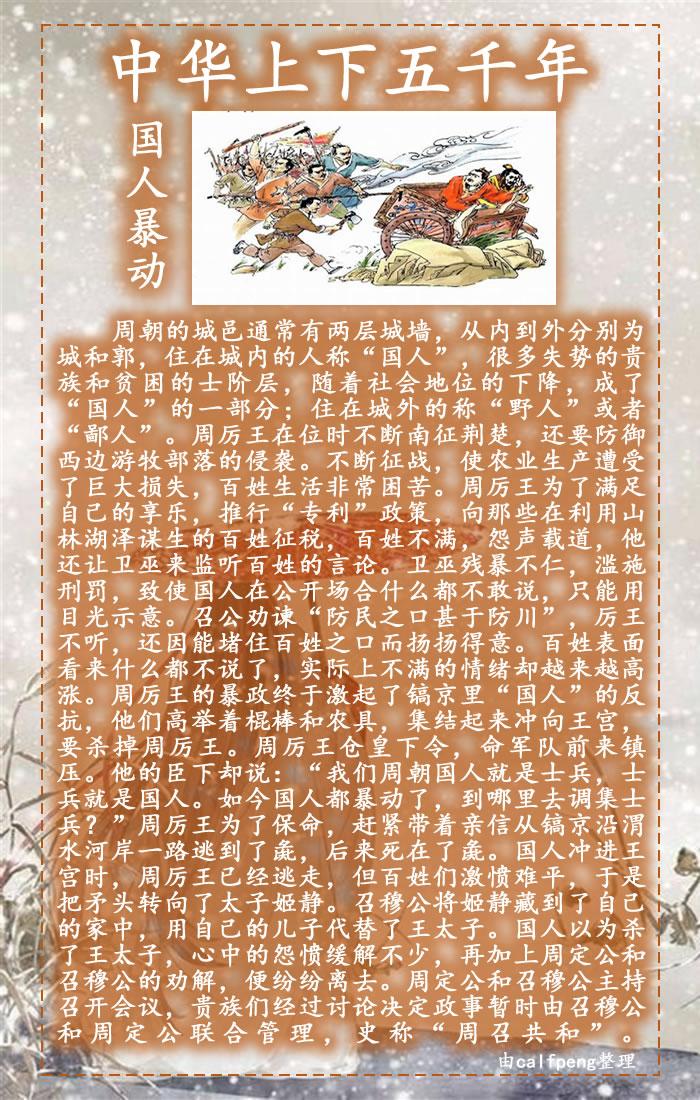 中华上下五千年
国人暴动
周朝的城邑通常有两层城墙，从内到外分别为
城和郭，住在城内的人称“国人”，很多失势的贵
族和贫困的士阶层，随着社会地位的下降，成了
“国人”的一部分；住在城外的称“野人”或者
“鄙人”。周厉王在位时不断南征荆楚，还要防御
西边游牧部落的侵袭。不断征战，使农业生产遭受
了巨大损失，百姓生活非常困苦。周厉王为了满足
自己的享乐，推行“专利”政策，向那些在利用山
林湖泽谋生的百姓征税，百姓不满，怨声载道，他
还让卫巫来监听百姓的言论。卫巫残暴不仁，滥施
刑罚，致使国人在公开场合什么都不敢说，只能用
目光示意。召公劝谏“防民之口甚于防川”，厉王
不听，还因能堵住百姓之口而扬扬得意。百姓表面
看来什么都不说了，实际上不满的情绪却越来越高
涨。周厉王的暴政终于激起了镐京里“国人”的反
抗，他们高举着棍棒和农具，集结起来冲向王宫，
要杀掉周厉王。周厉王仓皇下令，命军队前来镇
压。他的臣下却说：“我们周朝国人就是士兵，士
兵就是国人。如今国人都暴动了，到哪里去调集士
兵？”周厉王为了保命，赶紧带着亲信从镐京沿渭
水河岸一路逃到了彘，后来死在了彘。国人冲进王
宫时，周厉王已经逃走，但百姓们激愤难平，于是
把矛头转向了太子姬静。召穆公将姬静藏到了自己
的家中，用自己的儿子代替了王太子。国人以为杀
了王太子，心中的怨愤缓解不少，再加上周定公和
召穆公的劝解，便纷纷离去。周定公和召穆公主持
召开会议，贵族们经过讨论决定政事暂时由召穆公
和周定公联合管理，史称“周召共和”。
由calfpeng整理